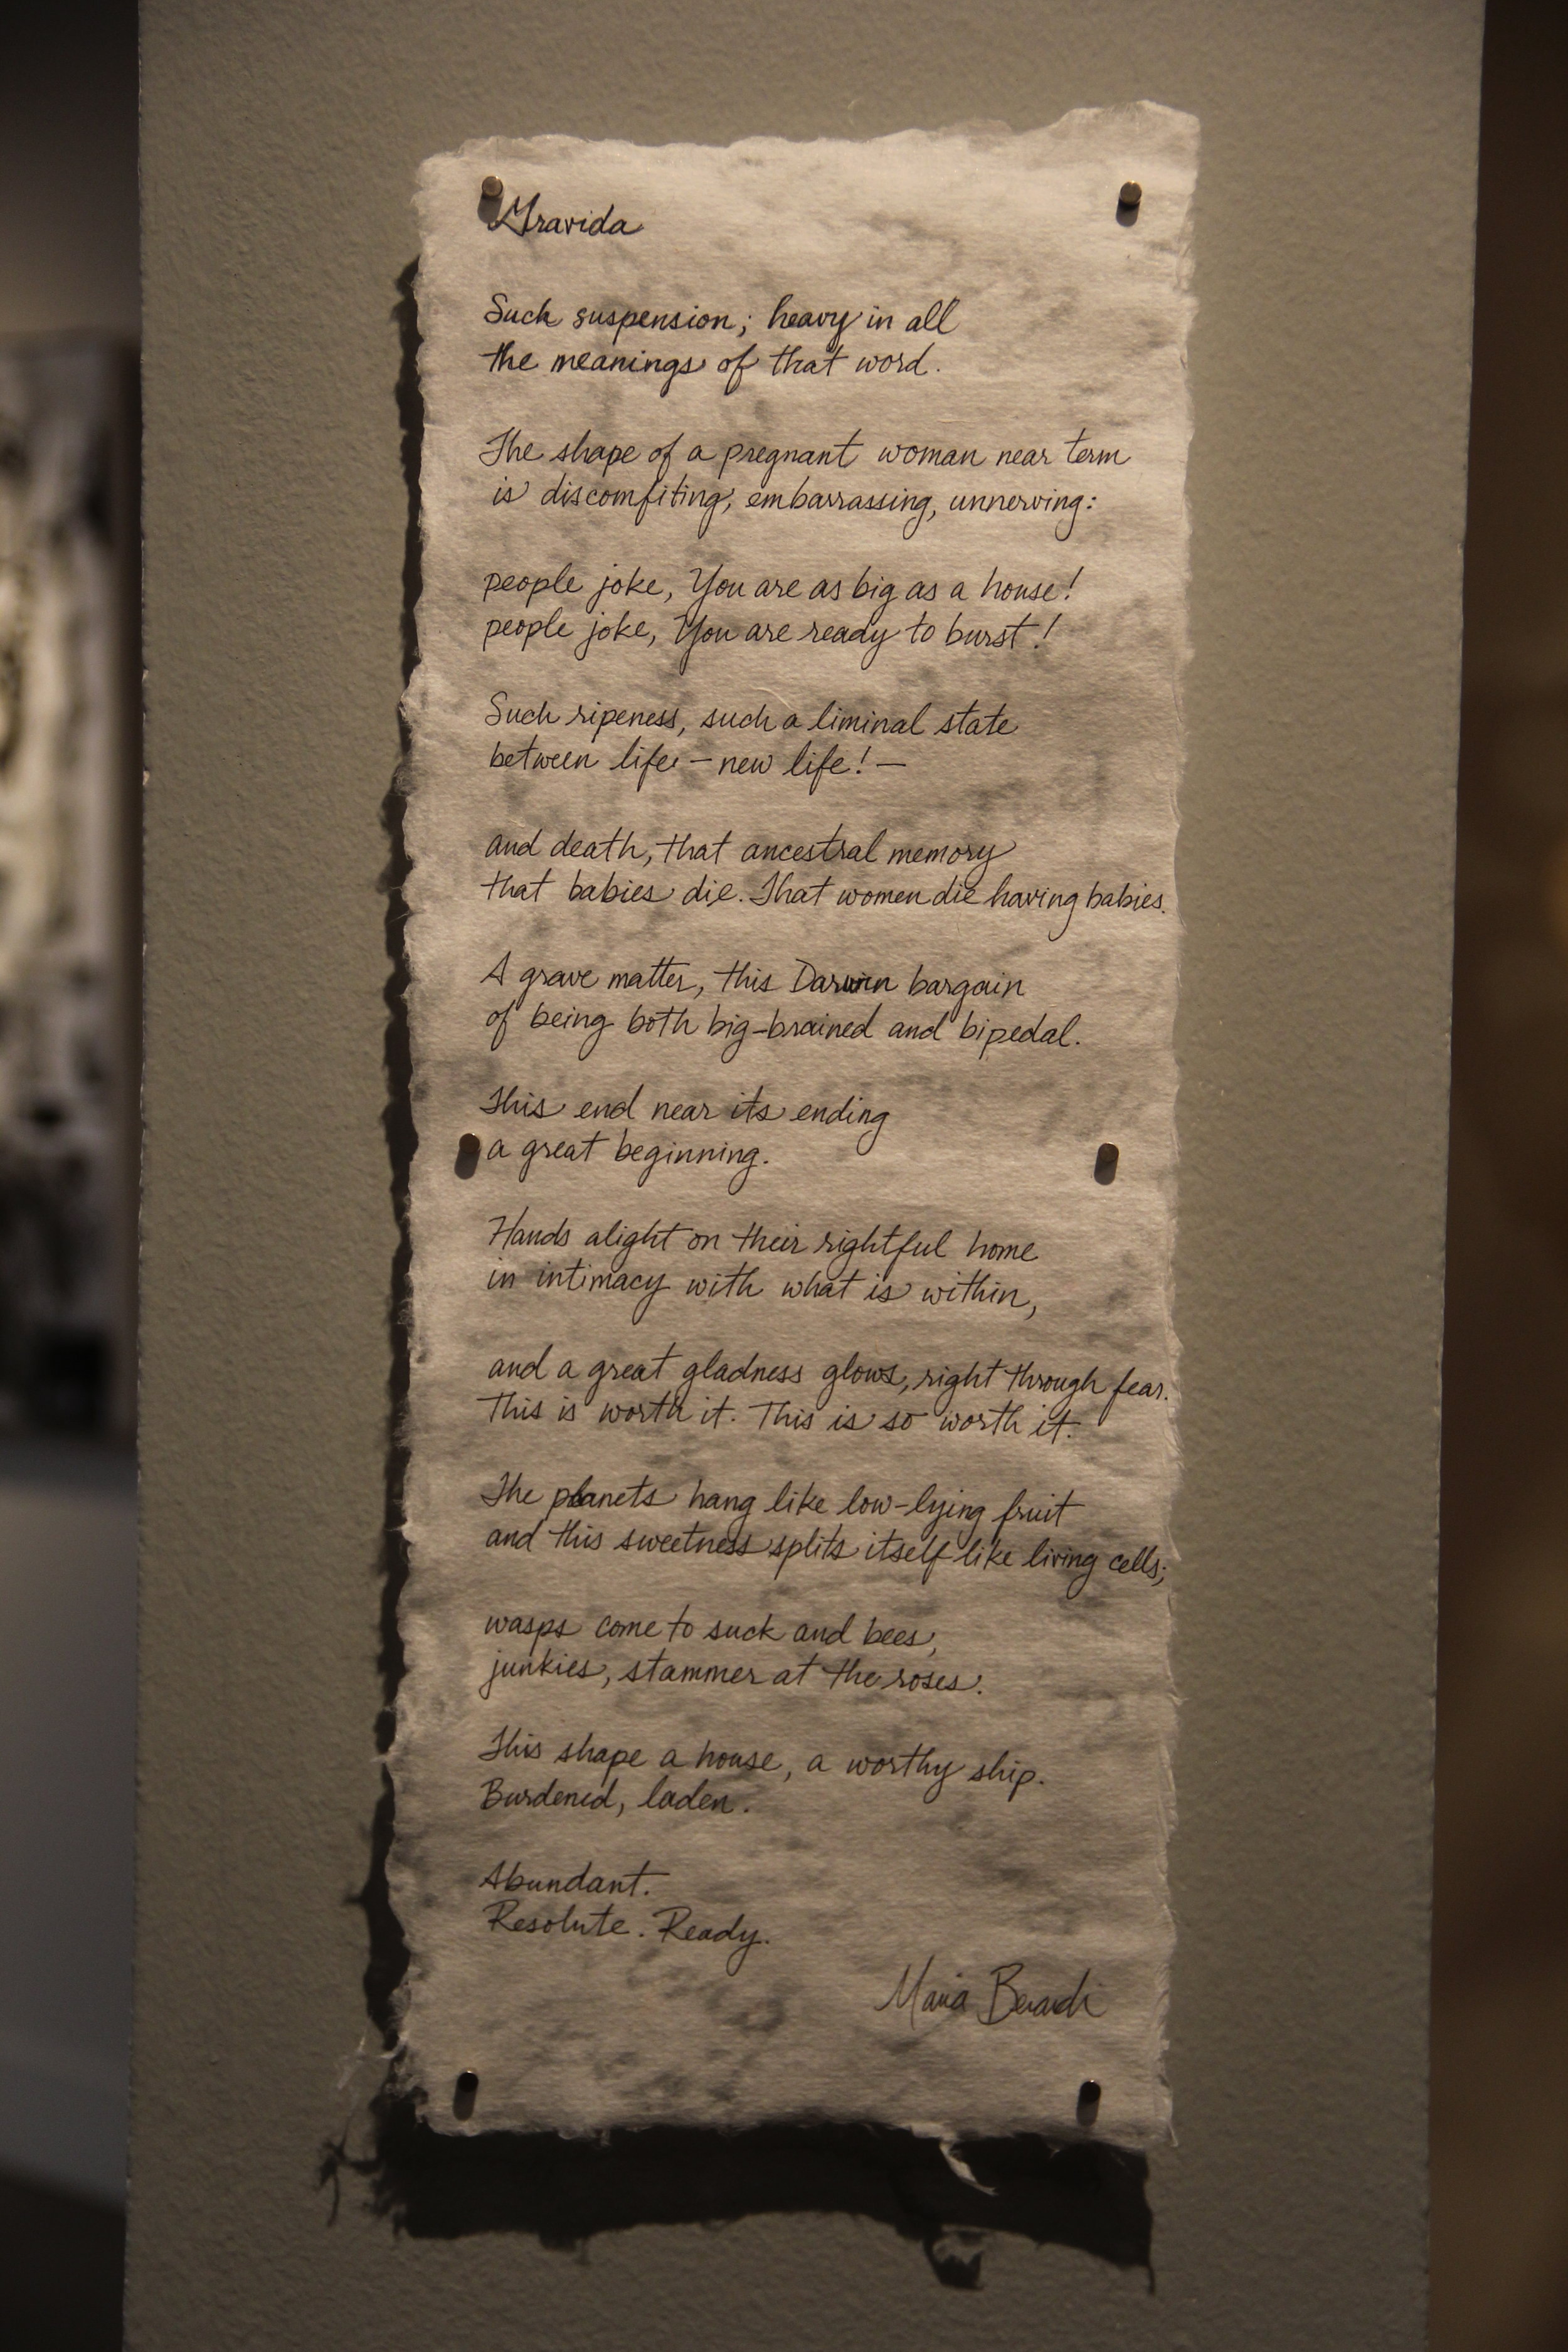 Gravida
Such suspension; heavy in all
the meanings of that word.
The shape of a pregnant woman near term
is discomfiting, embarrassing, unnerving:
people joke, You are as big as a house!
people joke, You are ready to burst!
Such ripeness, such a liminal state
between life - new life! -
and death, that ancestral memory
that babies die. That women die having babies.
A grave matter, this Darwin bargain
of being both big-brained and bipedal.
This end near its ending
a great beginning.
Hands alight on their rightful home
in intimacy with what is within,
and a great gladness glows, right through fear.
This is worth it. This is so worth it.
The planets hang like low-lying fruit
and this sweetness splits itself like living cells;
wasps come to suck and bees,
junkies, stammer at the roses.
This shape a house, a worthy ship.
Burdened, laden.
Abundant.
Resolute. Ready.
Maria Berardi